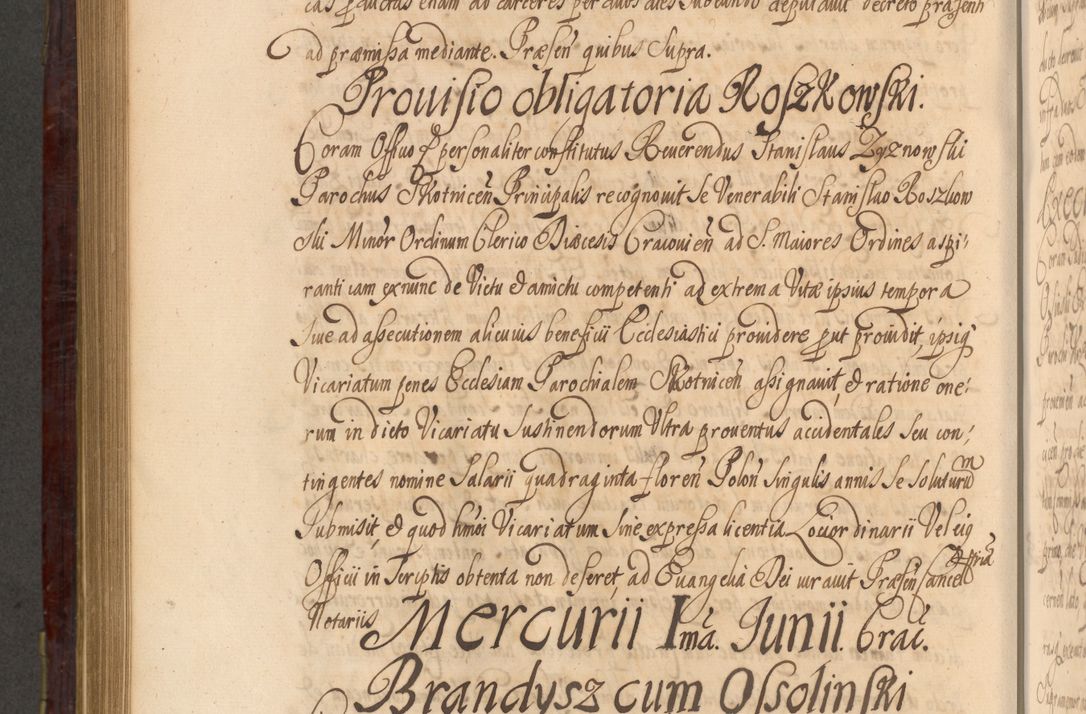 cas productas etiam ad carceres per duos dies subeundo deputavit decreto præsenti
ad præmissa mediante. Præsen quibus supra.
Prouisio obligatoria Roszkowski.
Coram Offuo & personaliter constitutus Reuerendus Stanislaus Zyznowski
Parochus Skotnicen Principalis recognouit se Venerabili Stanislao Roszkow
ski Minor Ordinum Clerico Diœcesis Cracouien ad S. Maiores Ordines aspi:
ranti iam exnunc de Victu & amictu competenti ad extrema Vitæ ipsius tempora
siue ad assecutionem alicuius beneficii Ecclesiastici prouidere put prouidit, ipsiq
Vicariatum penes Ecclesiam Parochialem Skotnicen assignauit, & ratione one:
rum in dicto Vicariatu sustinendorum Ultra prouentus accidentales seu con:
tingentes nomine Salarii quadraginta floren Polon singulis annis se soluturum
submisit & quod hmoi Vicariatum sine expressa licentia Loci ordinarii Vel eiq
Officii in scriptis obtenta non deseret, ad Euangelia Dei iurauit Præsen Cancel
Notariis
Mercurii Ima. Junii. Crac.
Brandysz cum Ossolinski